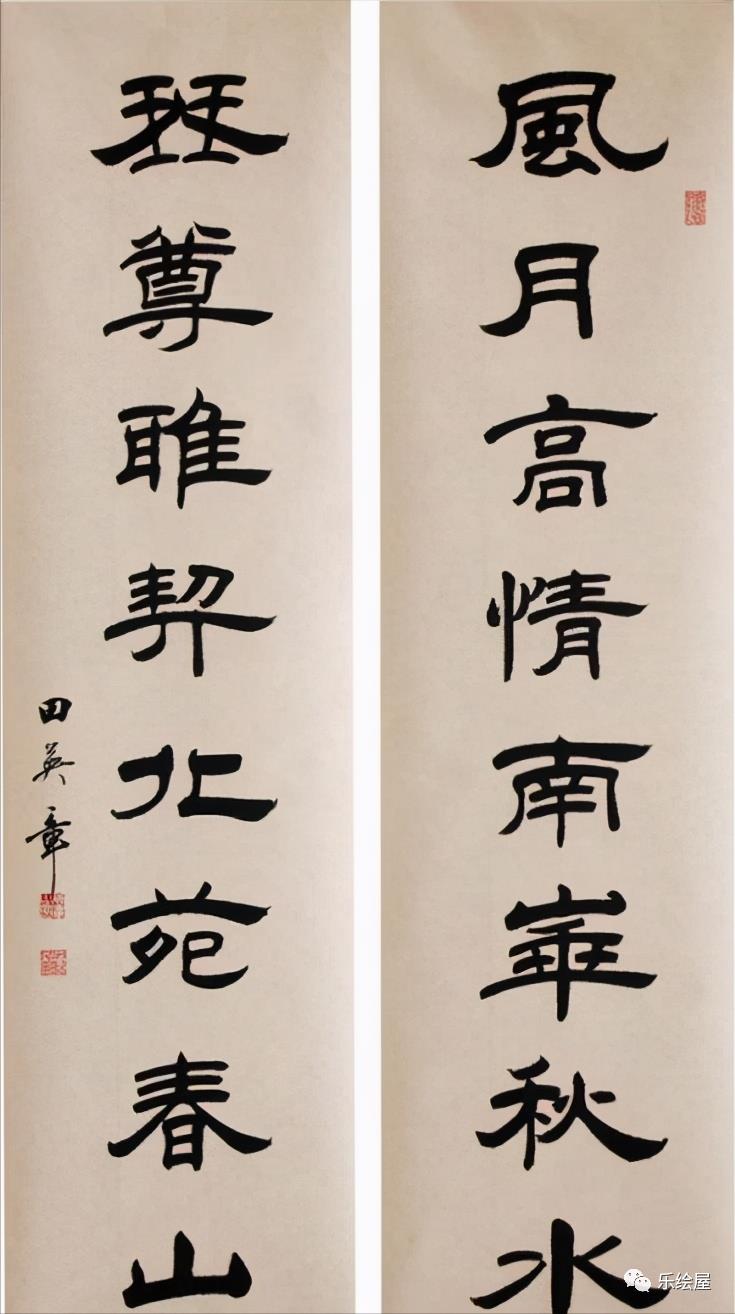 風月高情南華秋水
琴尊雅契北苑春山
田英章
乐绘屋